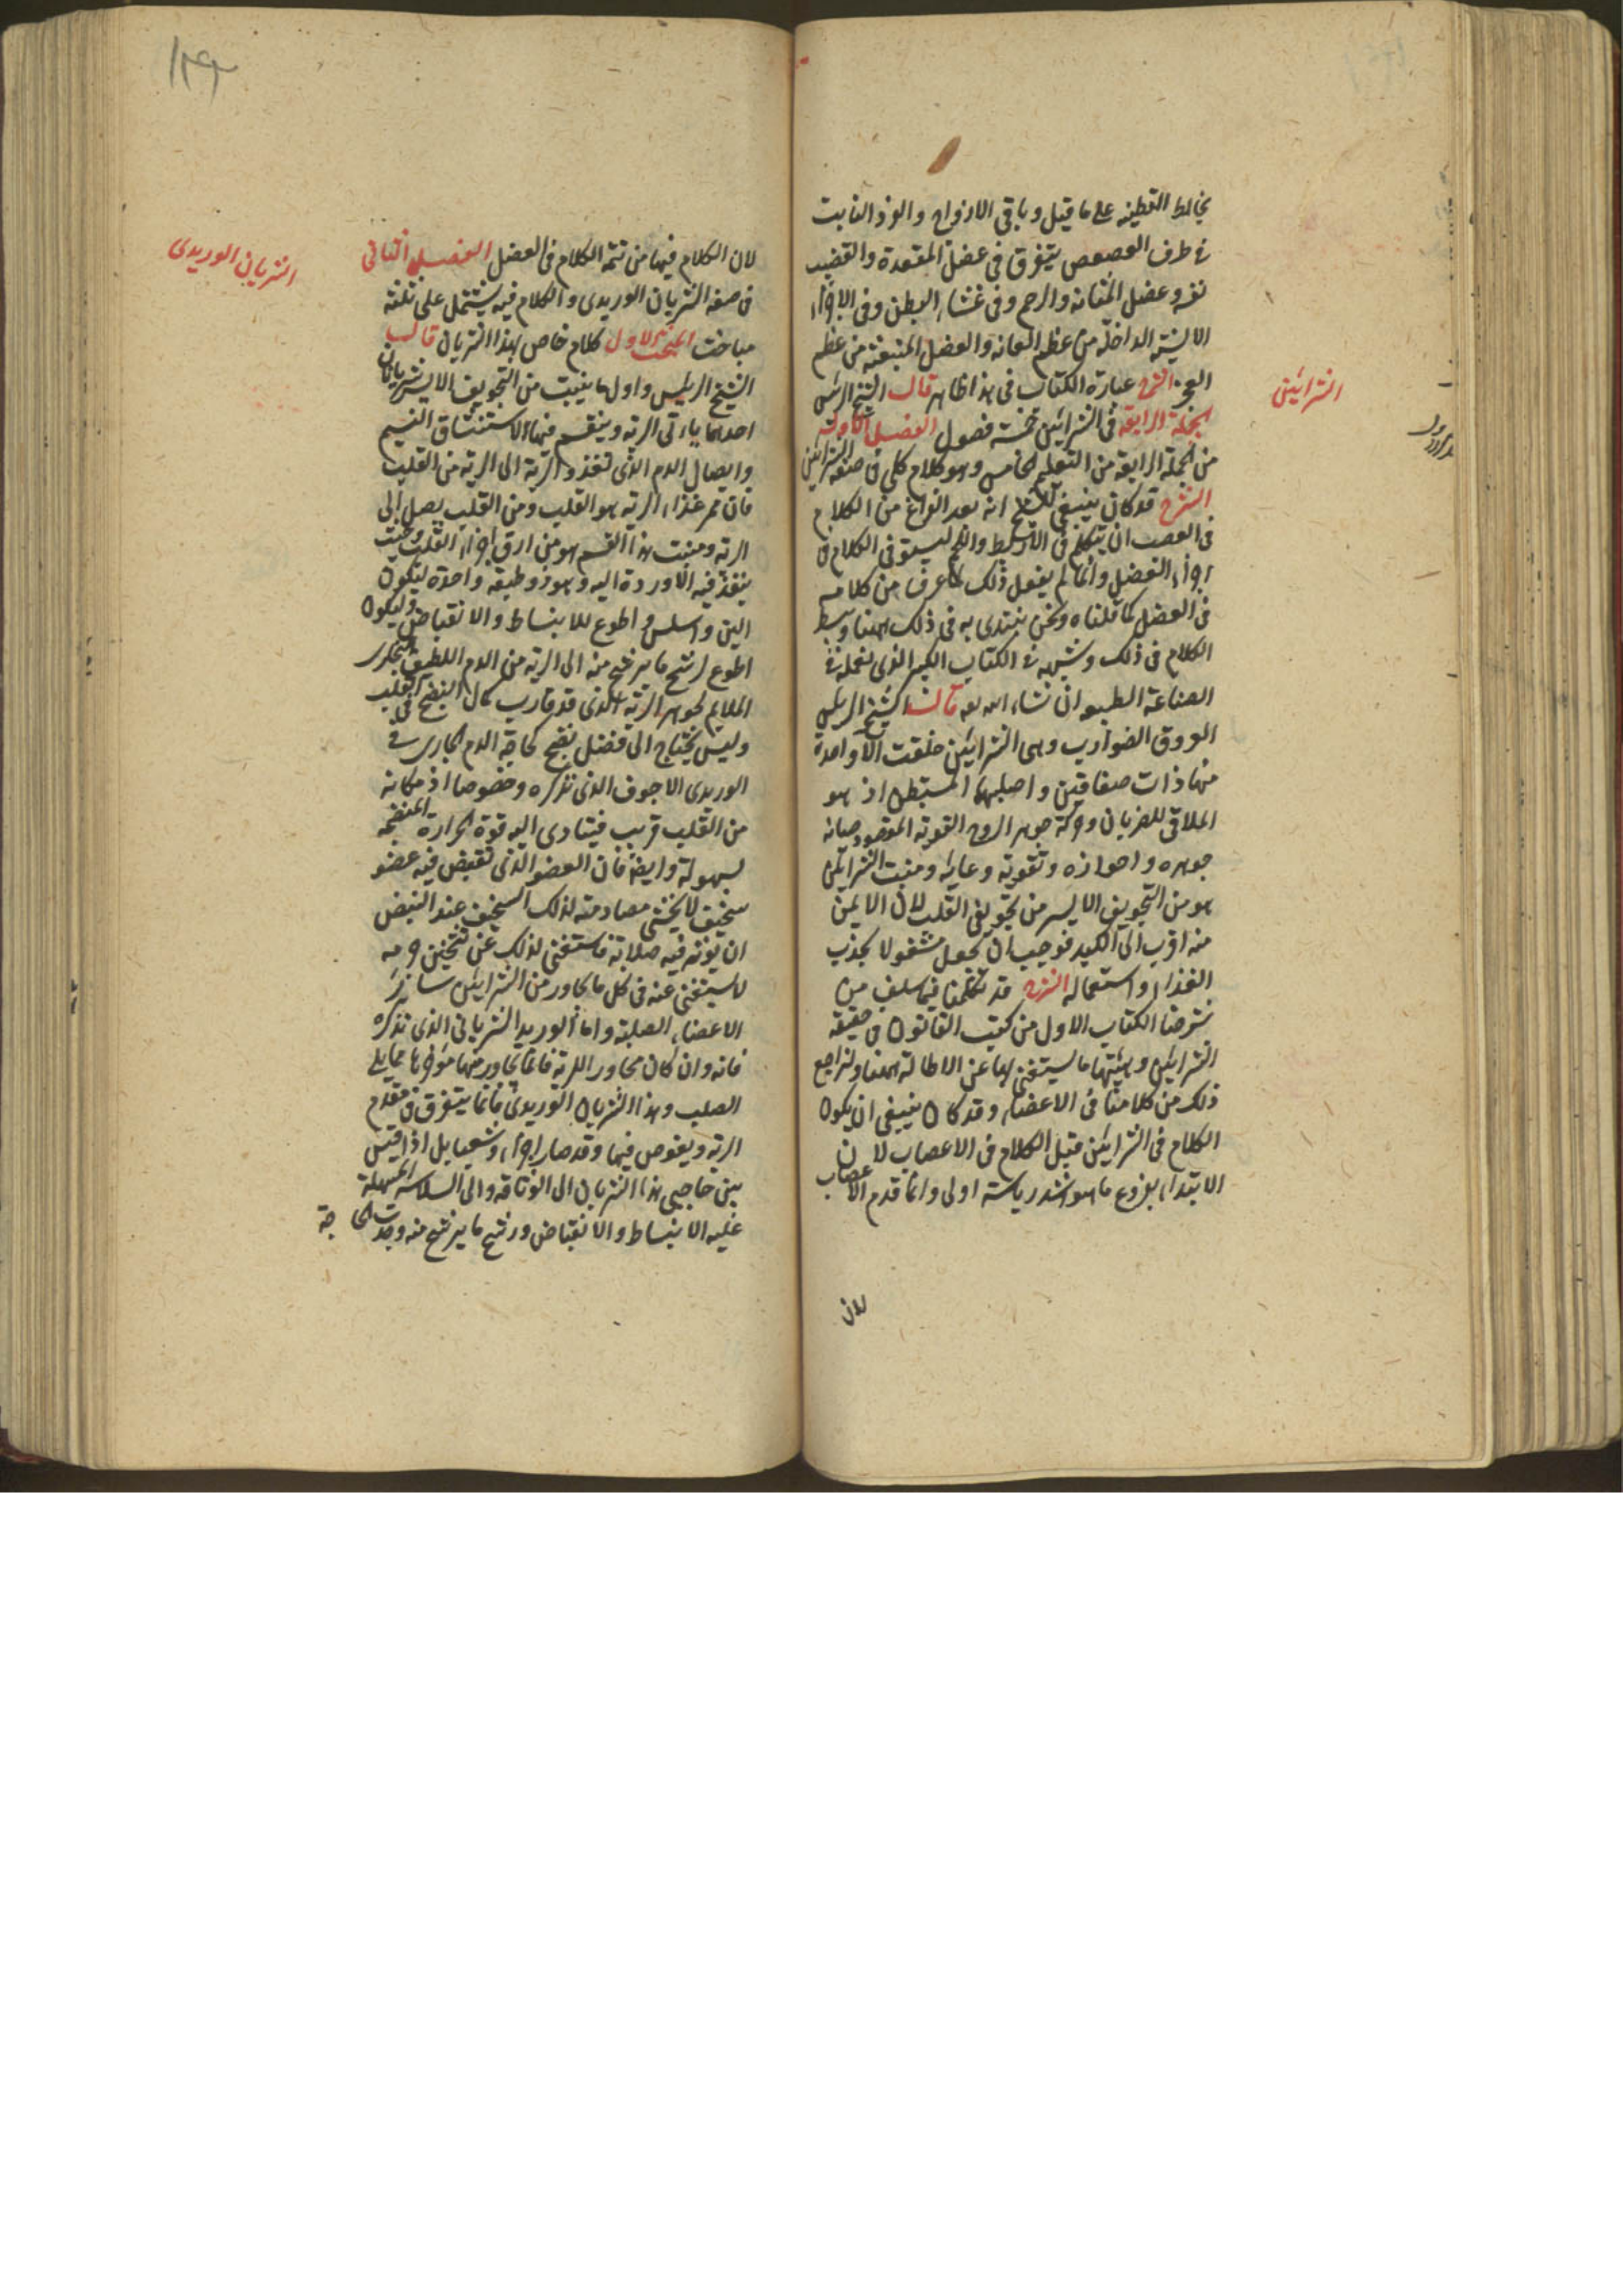 يخالط القطنيه على ما قيل وباقي الازواج والفرد النابت
في طرف العصعص يتفرق في عضل المقعدة والقضيب
نفسه وعضل المثانه والرحم وفي غشاء البطن وفي الاجزاء
الانسيه الداخلة من عظم العانه والعضل المنبعثه من عظم
العجز الشرح عبارة الكتاب في هذا ظاهر قال الشيخ الرئيس
الجملة الرابعة في الشرايين خمسة فصول الفصل الاول
من الجملة الرابعة من التعليم الخامس وهو كلام كلي في صفة الشرايين
الشرح قد كان ينبغي للشيخ انه بعد الفراغ من الكلام
في العصب ان يتكلم في الاربطة والحجب ليستوفي الكلام في
اجزاء العضل وانما لم يفعل ذلك لما عرف من كلامه
في العضل كما قلناه ونحن نبتدي به في ذلك ههنا وسط
الكلام في ذلك ونشبعه في الكتاب الكبير الذي نعمله في
الصناعة الطبيه ان شاء الله تعه قال الشيخ الرئيس
العروق الضوارب وهي الشرايين خلقت الا واحدة
منها ذات صفاقين واصلبهما المستبطن اذ هو
الملاقي للضربان وحركة جوهر الروح القويه المقصود صيانه
جوهره واحرازه وتقويه وعايه ومنبت الشرايين
هو من التجويف الايسر من تجويفي القلب لان الايمن
منه اقرب الى الكبد فوجب ان يجعل مشغولا بجذب
الغذاء واستعماله الشرح قد تكلمنا فيما سلف من
شرحنا الكتاب الاول من كتب القانون في حقيقة
الشرايين وهيئتها ما يستغني بها عن الاطالة ههنا وليراجع
ذلك من كلامنا في الاعضاء وقد كان ينبغي ان يكون
الكلام في الشرايين قبل الكلام في الاعصاب لان
الابتداء بفروع ما هو اشد رياسة اولى وانما قدم الاعصاب
لان
الشرايين
لان الكلام فيها من تتمه الكلام في العضل الفصل الثاني
في صفه الشريان الوريدي والكلام فيه يشتمل على ثلثة
مباحث البحث الاول كلام خاص بهذا الشريان قال
الشيخ الرئيس واول ما ينبت من التجويف الايسر شريانان
احدهما ياتي الريه وينقسم فيها لاستنشاق النسيم
وايصال الدم الذي تغذو الرية الى الرية من القلب
فان ممر غذاء الريه هو القلب ومن القلب يصل الى
الريه ومنبت هذا القسم هو من ارق اجزاء القلب وحيث
ينفذ فيه الاوردة اليه وهو ذو طبقه واحدة ليكون
الين واسلس واطوع للانبساط والانقباض وليكون
اطوع لرشح ما يرشح منه الى الريه من الدم اللطيف البخاري
الملايم لجوهر الريه الذي قد قارب كمال النضج في القلب
وليس يحتاج الى فضل نضج كحاجة الدم الجاري في
الوريدي الاجوف الذي نذكره وخصوصا اذ مكانه
من القلب قريب فيتادى اليه قوة الحرارة المنضجه
بسهولة وايضا فان العضو الذي تقبض فيه عضو
سخيف لا يخشى مصادمته لذلك السخيف عند النبض
ان توثر فيه صلابة فاستغنى لذلك عن تثخين جرمه
لا يستغني عنه في كل ما يجاور من الشرايين سائر
الاعضاء الصلبة واما الوريد الشرياني الذي نذكره
فانه وان كان مجاورا للرية فانما يجاور منها مؤخرها مما يلي
الصلب وهذا الشريان الوريدي فانما يتفرق في مقدم
الريه ويغوص فيها وقد صار اجزاء وشعبا بل اذا قيس
بين حاجتي هذا الشريان الى الوثاقه والى السلاسه المسهلة
عليه الانبساط والانقباض ورشح ما يرشح منه وجدت الحاجة
الشريان الوريدي